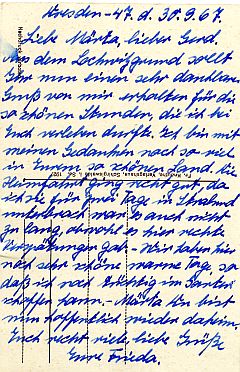 Dresden - 47. d. 30.9.67.
Liebe Märta, lieber Gerd.
Aus dem Lochwitzgrund sollt
Ihr nun einen sehr dankbaren
Gruß von mir erhalten für die
so schönen Stunden, die ich bei
Euch verleben durfte. Ich bin mit
meinen Gedanken noch so viel
in Eurem so schönen Land. Die
Heimfahrt ging recht gut, da
ich sie für zwei Tage in Stralsund
unterbrach war es auch nicht
zu lang, obwohl es hier rechte
gab. - Wir haben hier
noch sehr schöne warme Tage, so
daß ich noch tüchtig im Garten
schaffen kann. - Märta Du bist
nun hoffentlich wieder daheim.
Euch recht viele liebe Grüße
Eure Frieda.